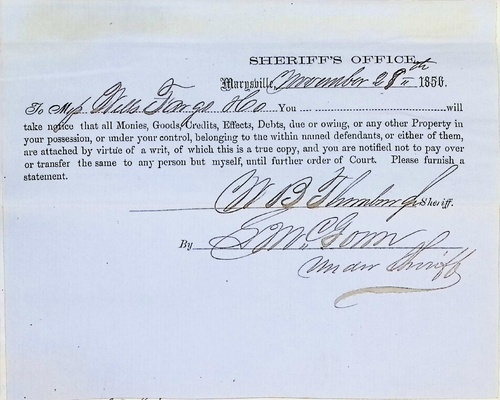 SHERIFF'S OFFICE,
Marysville, November 28th 1856.
To Mess Wells Fargo & Co You ... will
take notice that all Monies, Goods, Credits, Effects, Debts, due or owing, or any other Property in
your possession, or under your control, belonging to the within named defendants, or either of them,
are attached by virtue of a writ, of which this is a true copy, and you are notified not to pay over
or transfer the same to any person but myself, until further order of Court. Please furnish a
statement.
W B Thornburgh Sheriff.
By
Under Sheriff